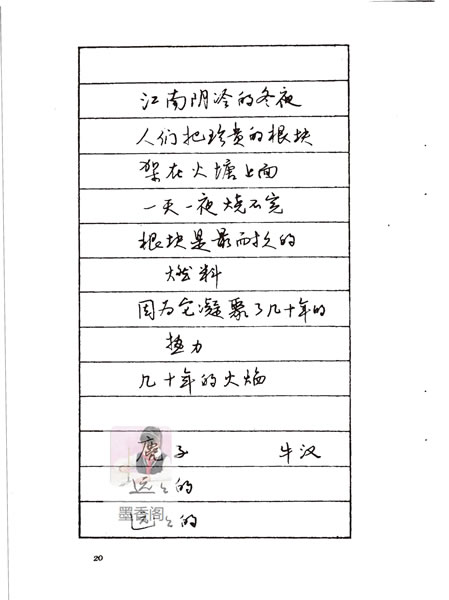 江南阴冷的冬夜
人们把珍贵的根块
架在火塘上面
一天一夜烧不完
根块是最耐久的
燃料
因为它凝聚了几十年的
热力
几十年的火焰
鹿子 牛汉
远々的
远々的
墨香阁
20